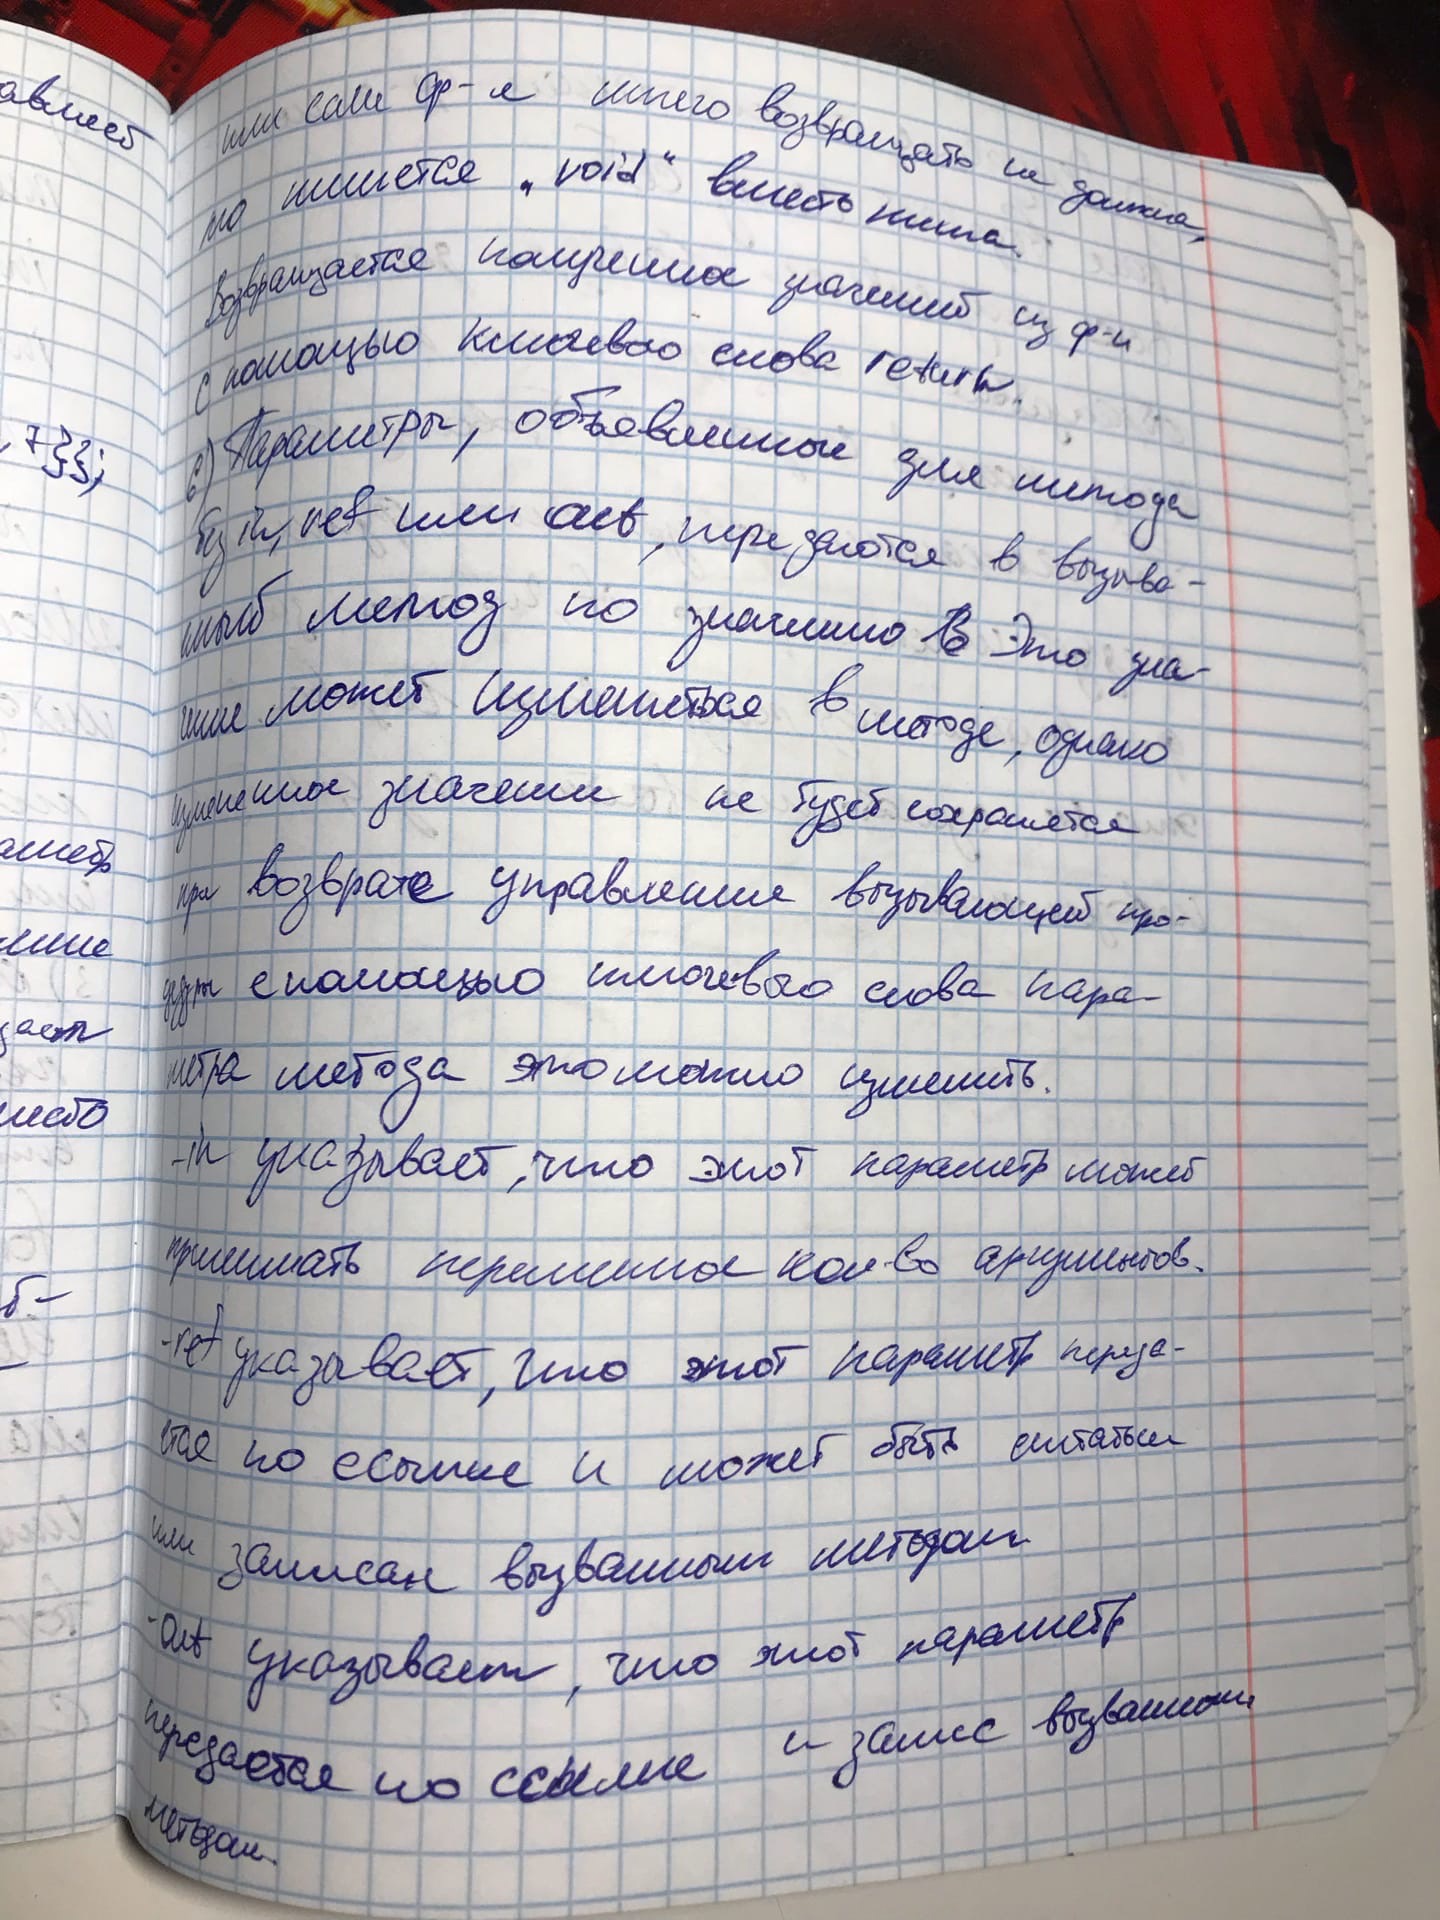 авляет
или если ф-я ничего возвращать не должна,
то пишется „void“ вместо типа.
Возвращается полученное значений из ф-и
с помощью ключевого слова return.
6) Параметры, объявленные для метода
без in, ref или out, передаются в вызыва-
нный метод по значению В Это зна-
чение может измениться в методе, однако
измененное значение не будет сохраняется
при возврате управления вызывающей про-
цедуры с помощью ключевого слова пара-
метра метода это можно изменить.
-in указывает, что этот параметр может
принимать переменное кол-во аргументов.
-ref указывает, что этот параметр переда-
ется по ссылке и может быть считатын
или записан вызванным методом
-out указывает, что этот параметр
передается по ссылке и запис вызванным
методом.
, 7}};
аметр
ние
дать
место
б-